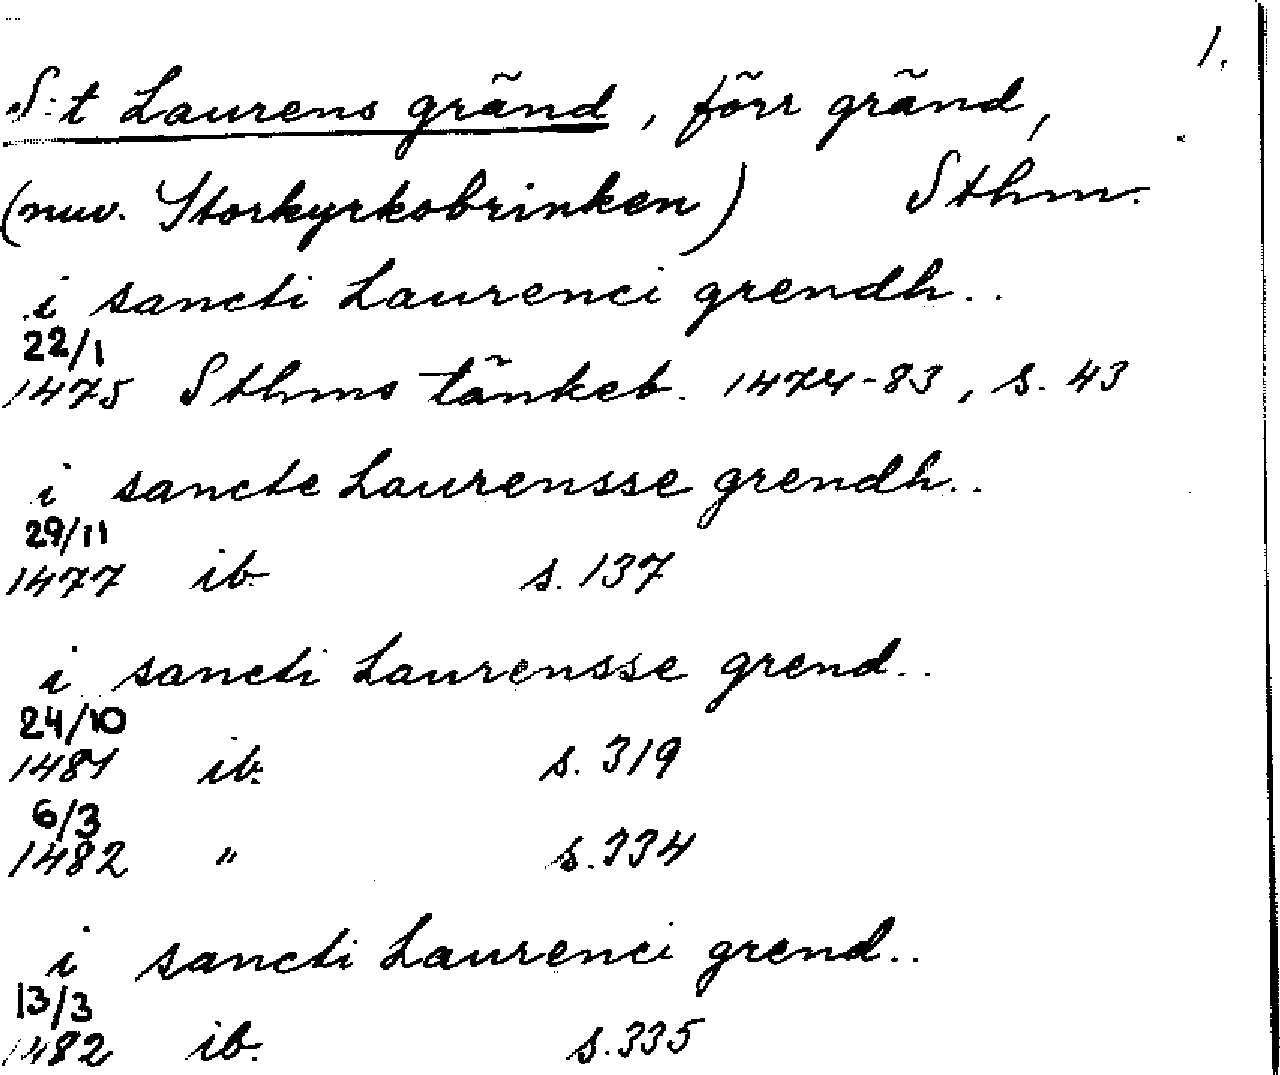 1.
S:t Laurens gränd, förr gränd,
(nuv. Storkyrkobrinken) Sthm.
i sancti Laurenci grendh..
22/1
1475 Sthms tänkeb. 1474-83, s. 43
i sancte Laurensse grendh..
29/11
1477 ib. s. 137
i sancti Laurensse grend..
24/10
1481 ib. s. 319
6/3
1482 " s. 334
i sancti Laurenci grend..
13/3
1482 ib. s. 335